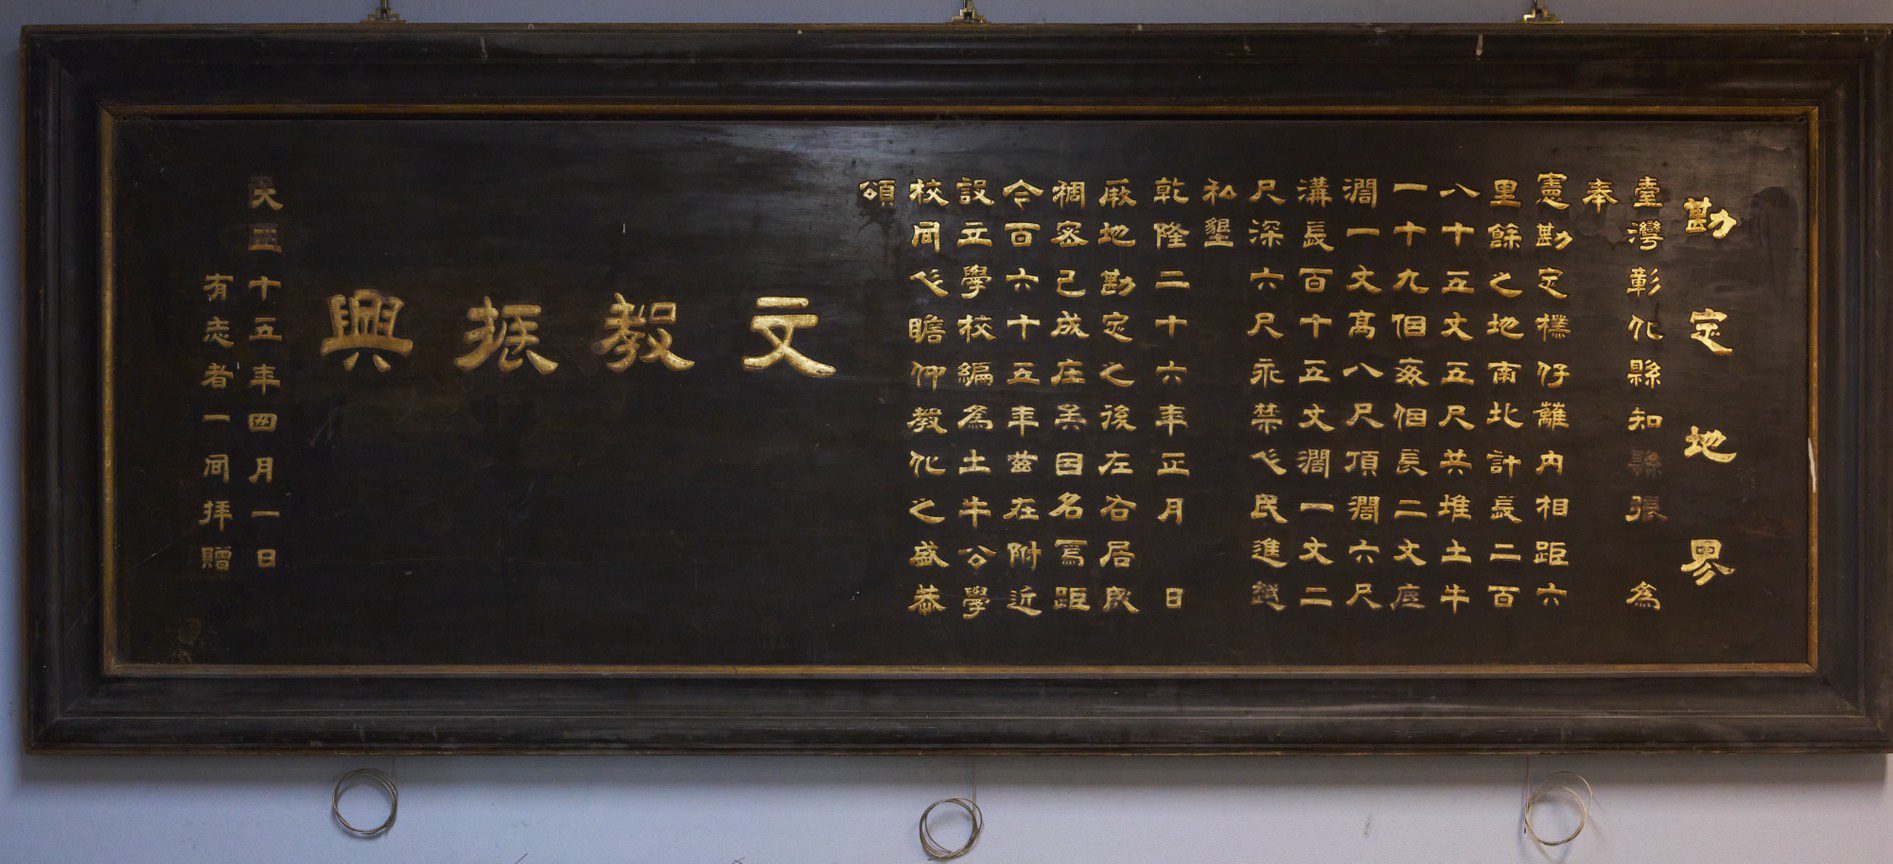 勘定地界
臺灣彰化縣知縣張 為
奉
憲勘定樸仔蘺內相距六
里餘之地南北計長二百
八十五丈五尺共堆土牛
一十九個亥個長二丈底
濶一丈高八尺頂濶六尺
溝長百十五丈濶一丈二
尺深六尺永禁人民進越
私墾
乾隆二十六年正月 日
厥地勘定之後左右居
稠密已成庄矣因名焉距
今百六十五年茲在附近
設立學校編為土牛公學
校同人瞻仰教化之盛恭
頌
文教振興
大正十五年四月一日
有志者一同拜贈